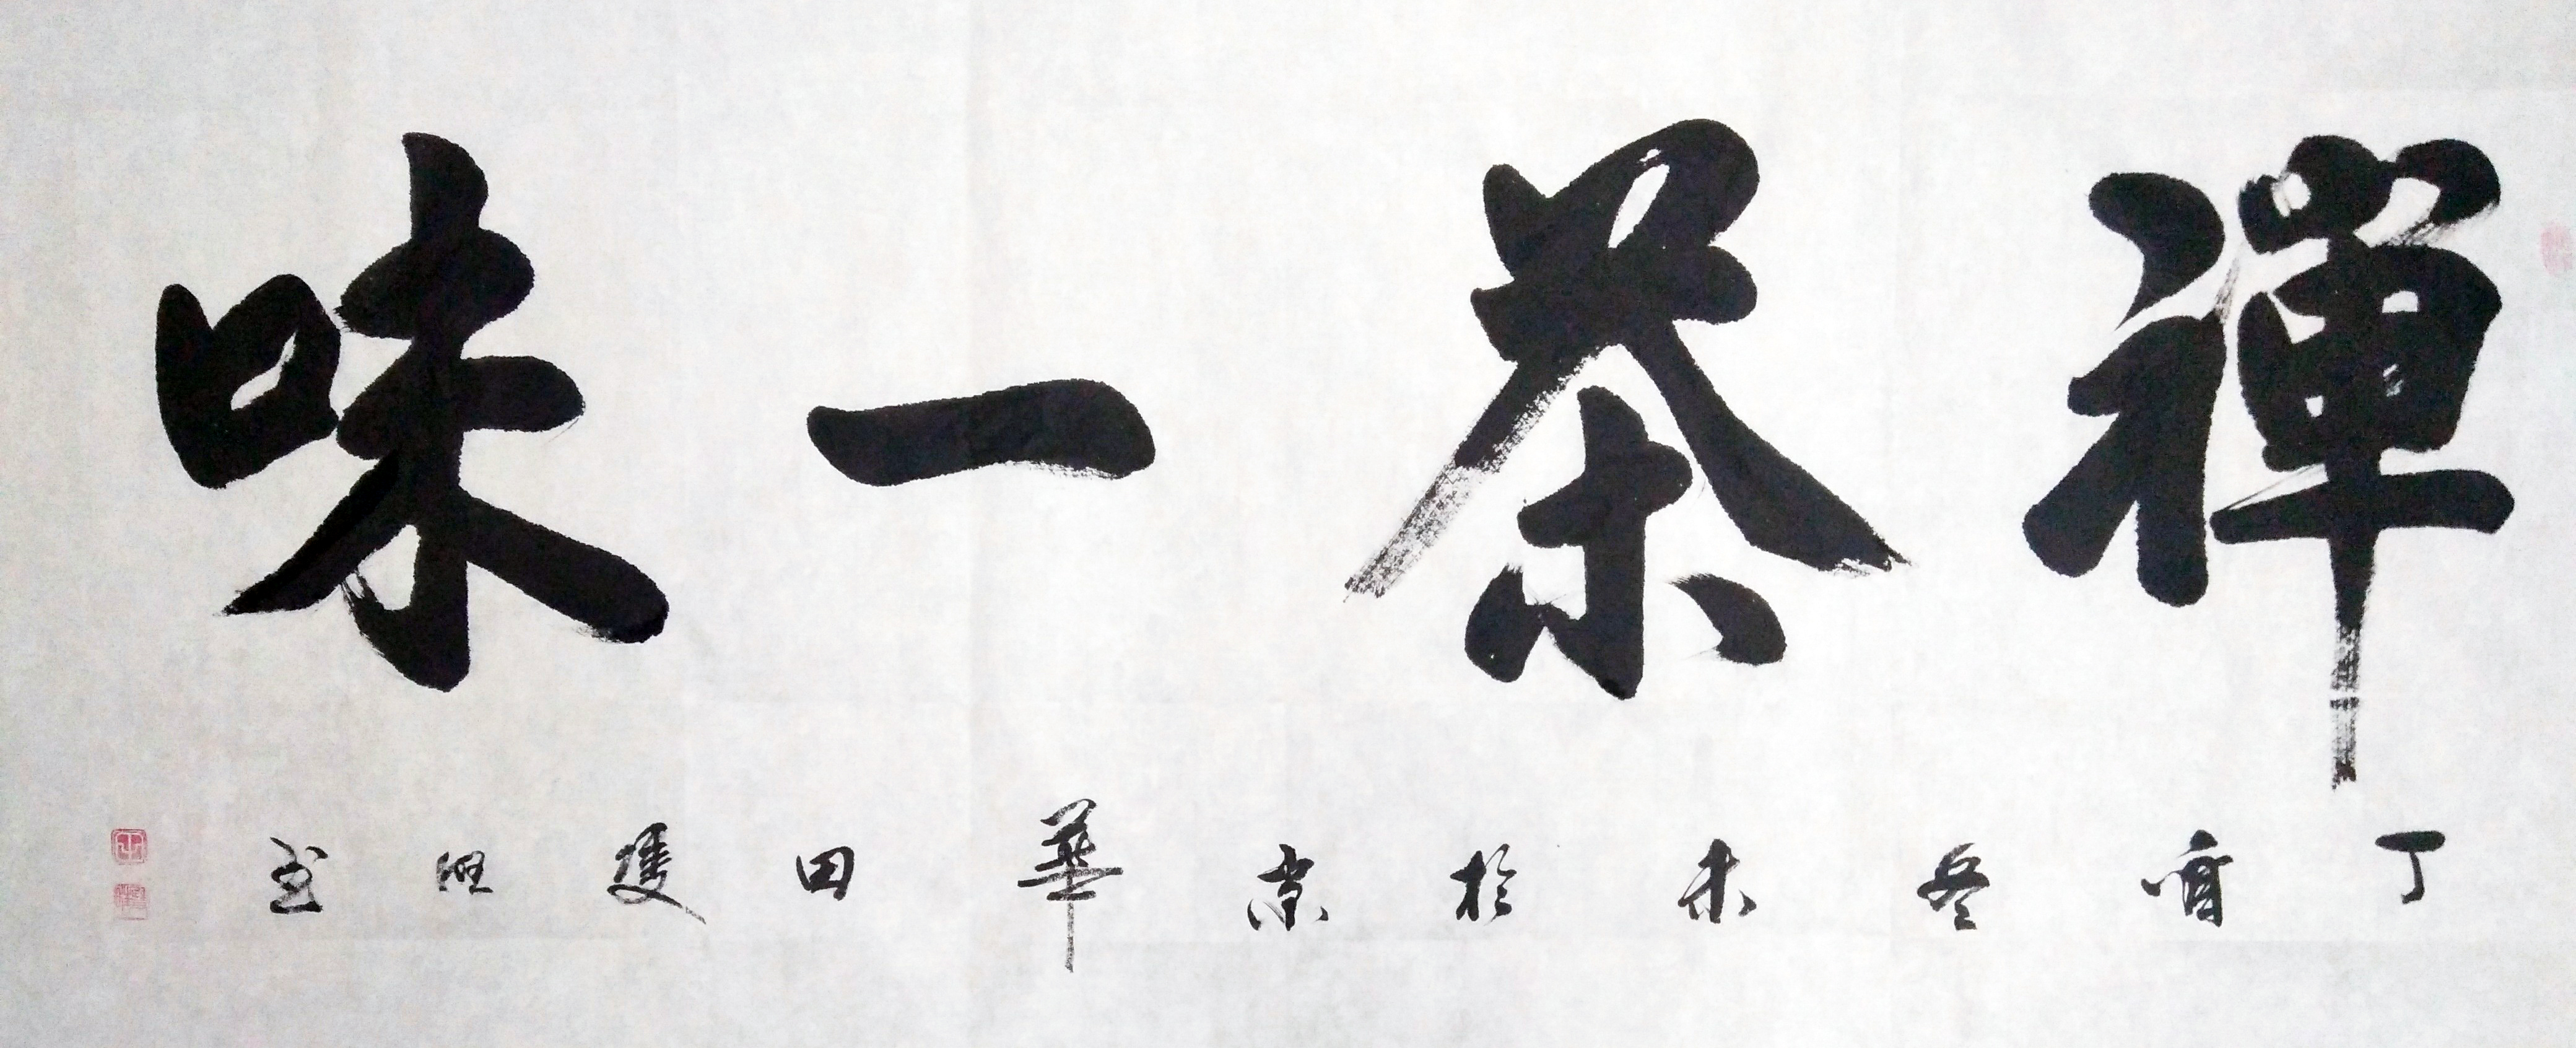 禪茶一味
丁酉冬末於京華田